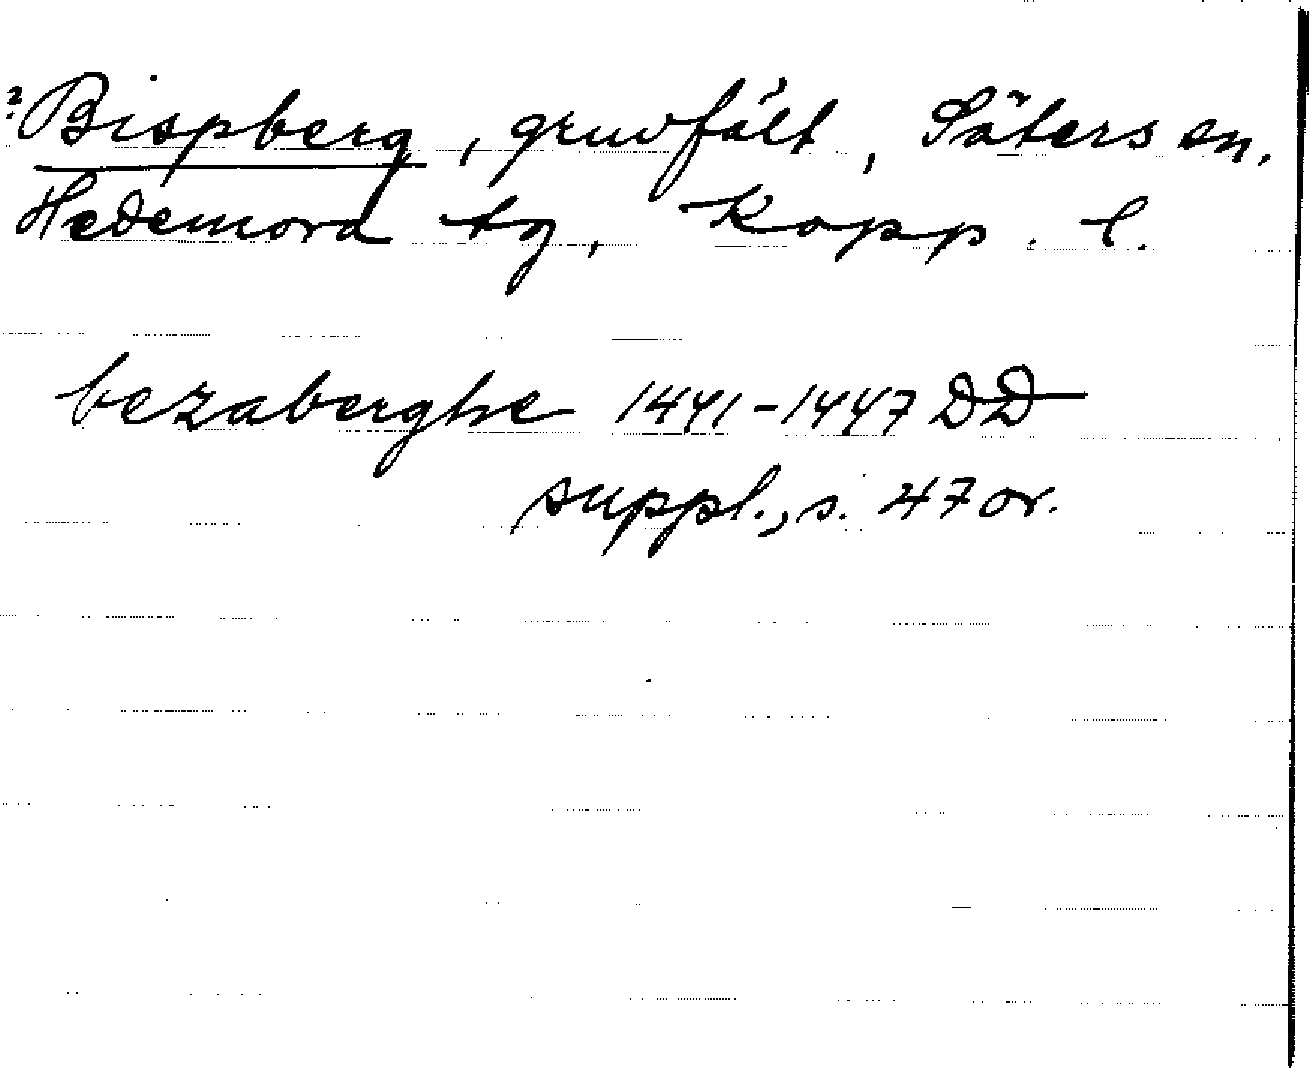 ? Bispberg, gruvfält, Säters sn,
Hedemora tg, Kopp. l.
bezaberghe 1441-1447 DD
suppl., s. 47 or.